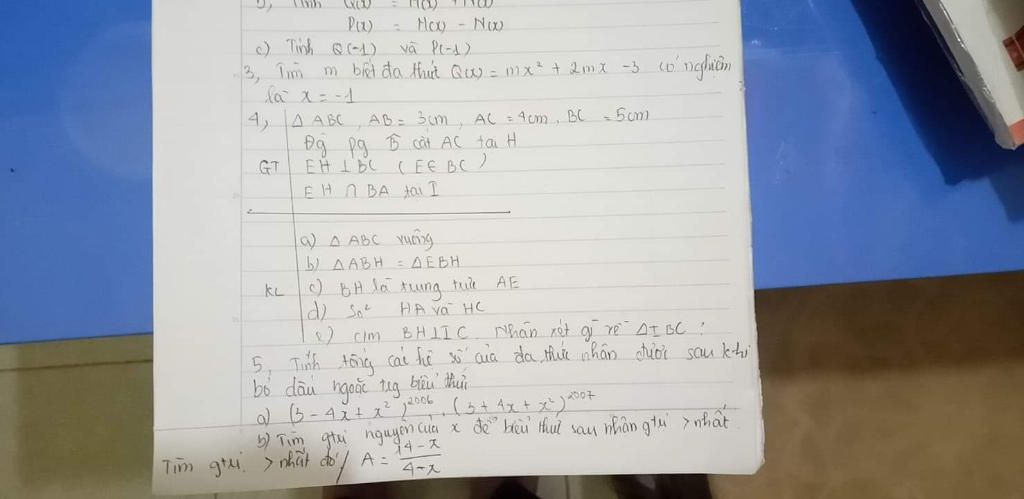 b, Tính Q(x) = M(x) + N(x)
P(x) = M(x) - N(x)
c) Tính Q(-1) và P(-1)
3, Tìm m biết đa thức Q(x) = mx² + 2mx - 3 có nghiệm
là x = -1
4, Δ ABC, AB = 3cm, AC = 4cm, BC = 5cm
Đg pg B̂ cắt AC tại H
GT EH ⊥ BC (E ∈ BC)
EH ∩ BA tại I
a) Δ ABC vuông
b) Δ ABH = Δ EBH
KL c) BH là trung trực AE
d) So² HA và HC
e) c/m BH ⊥ IC. Nhận xét gì về Δ IBC?
5, Tính tổng các hệ số của đa thức nhận được sau khi
bỏ dấu ngoặc tg biểu thức
a) (3 - 4x + x²)²⁰⁰⁶ . (3 + 4x + x²)²⁰⁰⁷
b) Tìm gtrị nguyên của x để biểu thức sau nhận gtrị > nhất.
Tìm gtrị > nhất đó / A = 14 - x / 4 - x